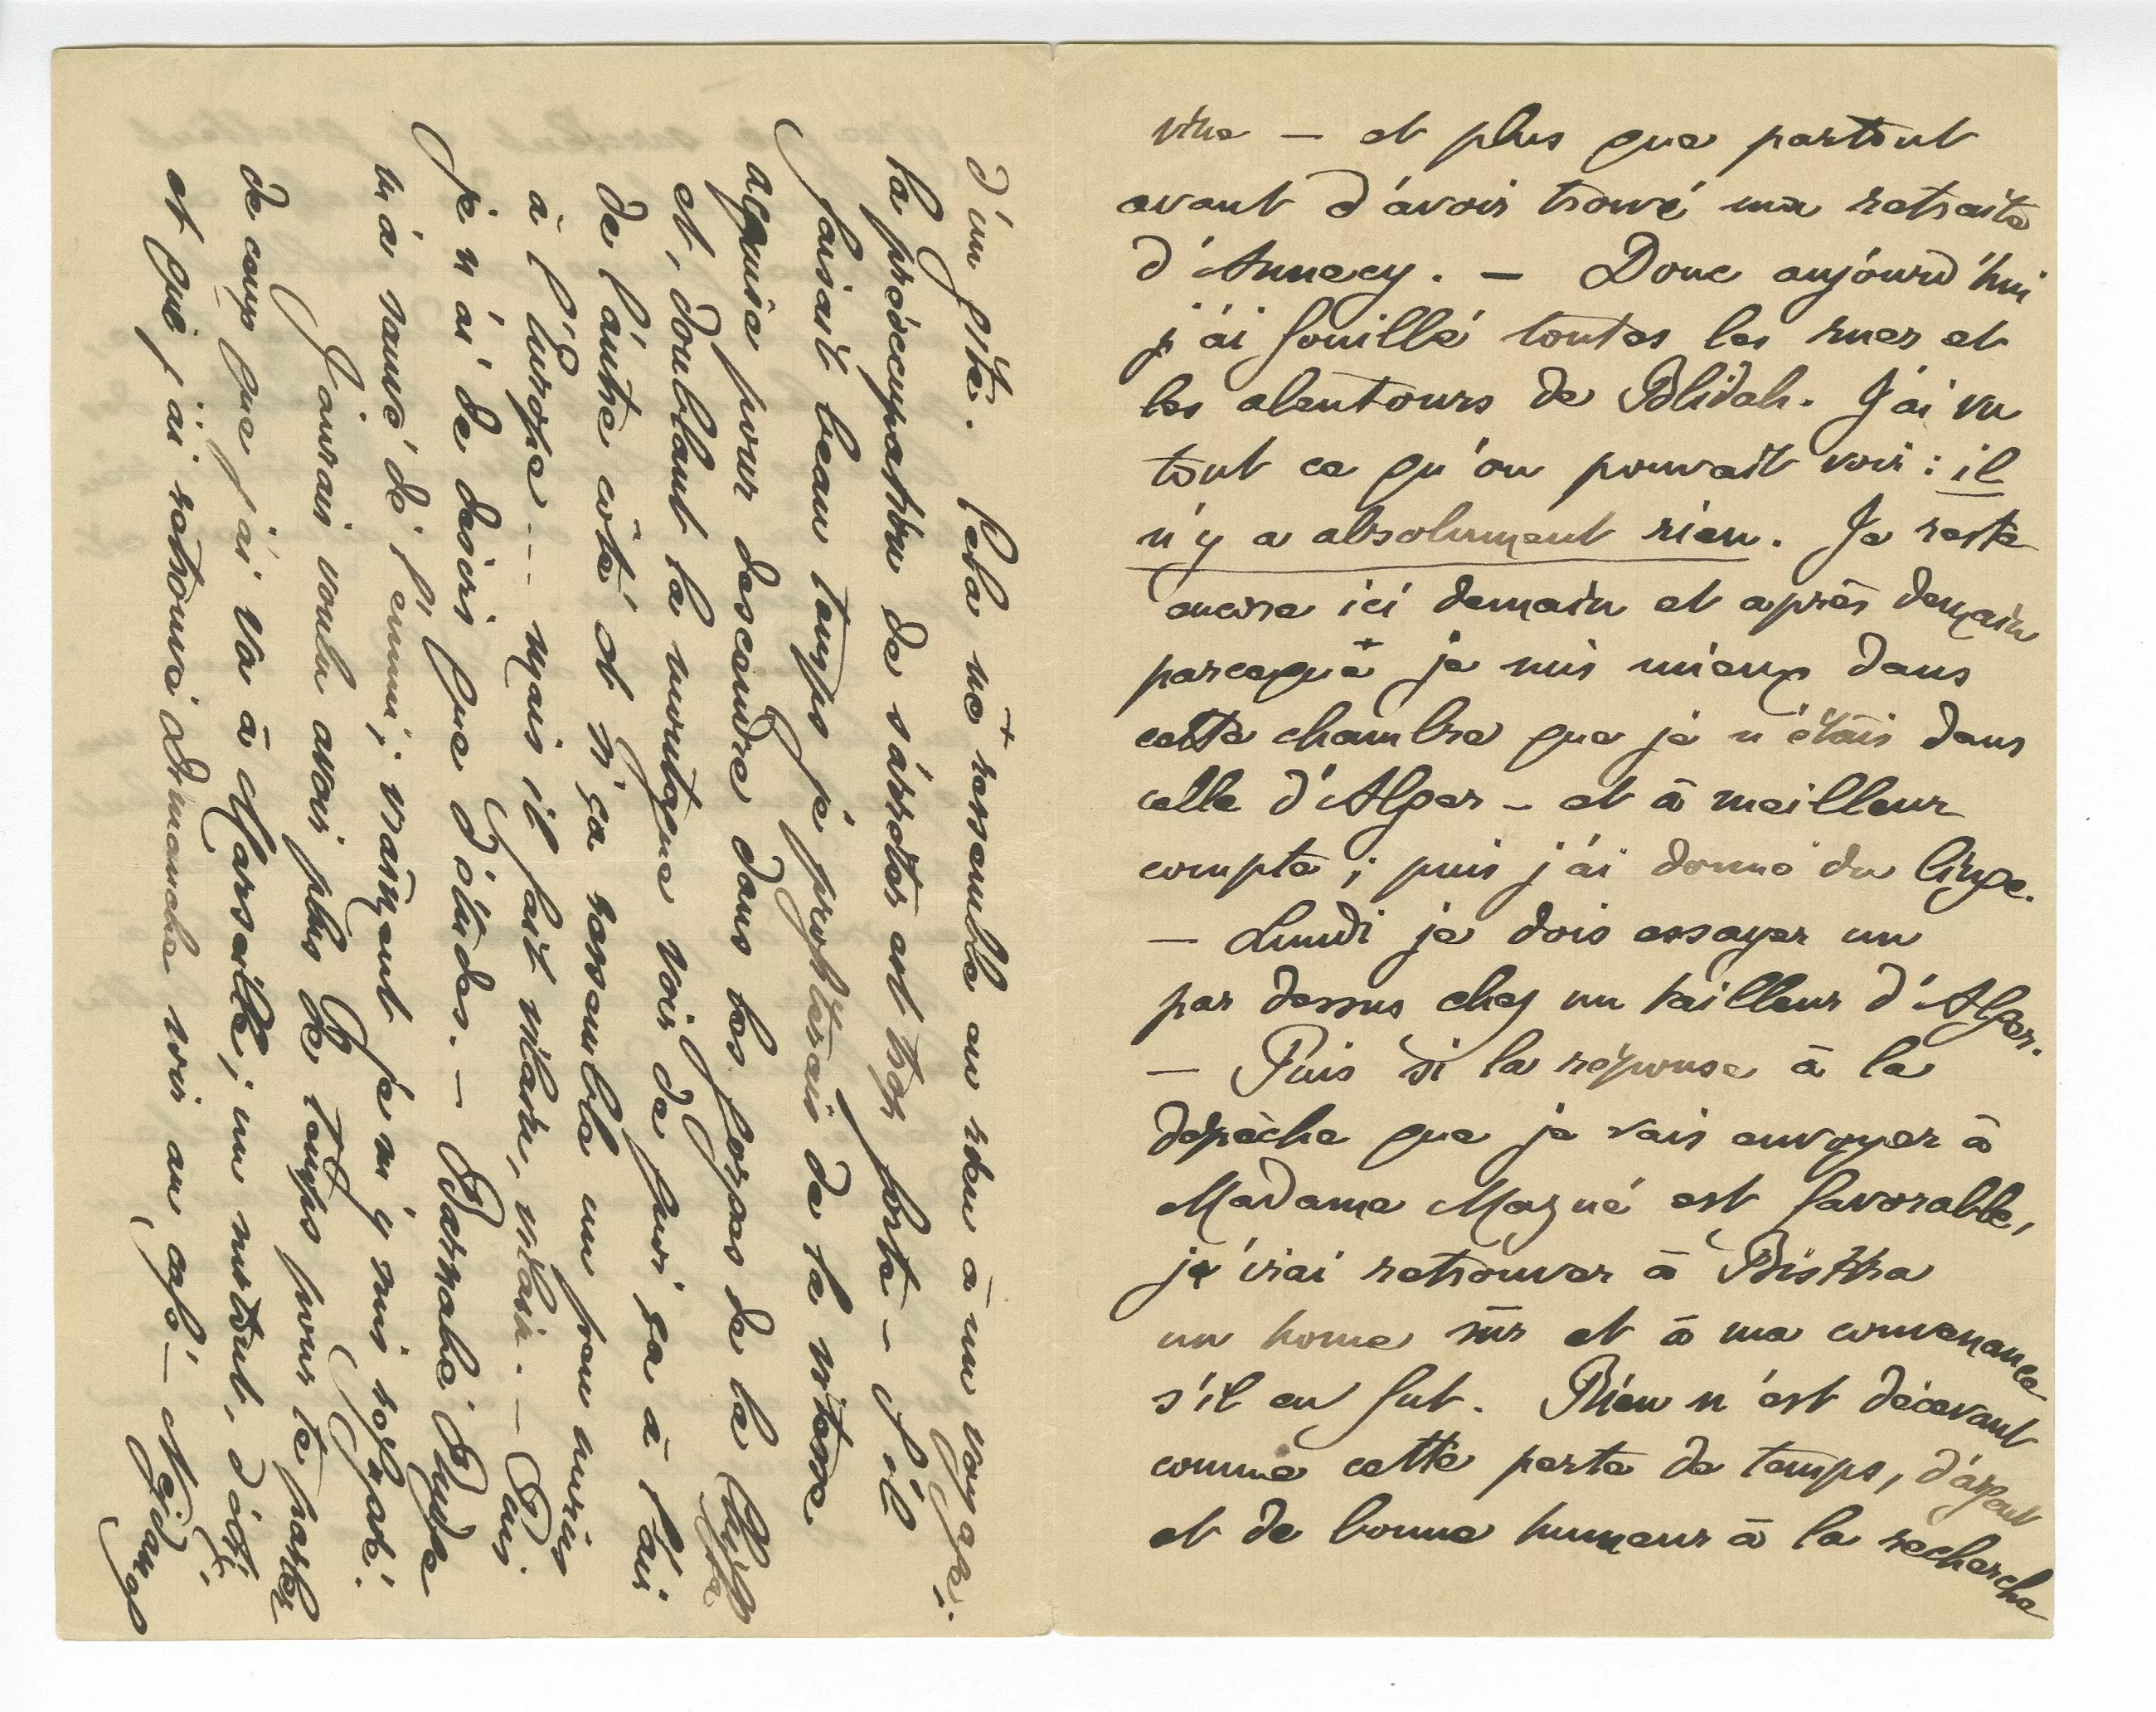 vine — et plus que partout
avant d'avoir trouvé ma retraite
d'Annecy. — Donc aujourd'hui
j'ai fouillé toutes les rues et
les alentours de Blidah. J'ai vu
tout ce qu'on pouvait voir : il
n'y a absolument rien. Je reste
encore ici demain et après demain
parceque je suis mieux dans
cette chambre que je n'étais dans
celle d'Alger — et à meilleur
compte ; puis j'ai donné du linge.
— Lundi je dois essayer un
par dessus chez un tailleur d'Alger.
— Puis si la réponse à la
dépèche que je vais envoyer à
Madame Mazué est favorable,
je irai retrouver à Biskra
un home sûr et à ma convenance
s'il en fut. Rien n'est décevant
comme cette perte de temps, d'argent
et de bonne humeur à la recherche
d'un gîte. Cela ne ressemble en rien à un voyage :
la préoccupation de s'arrêter est trop forte — S'il
faisait beau temps je profiterais de la vitesse
acquise pour descendre dans les gorges de la Chiffa
et, doublant la montagne voir de quoi ça a l'air
de l'autre côté et si ça ressemble un peu moins
à l'Europe... mais il fait vilain, vilain. — Puis
je n'ai de désirs que d'études. — Barnabé Rudge
m'a sauvé de l'ennui ; vraiment je m'y suis réfugié.
J'aurais voulu avoir plus de temps pour te parler
de ceux que j'ai vu à Marseille ; un surtout,
et que j'ai retrouvé dimanche soir au café —